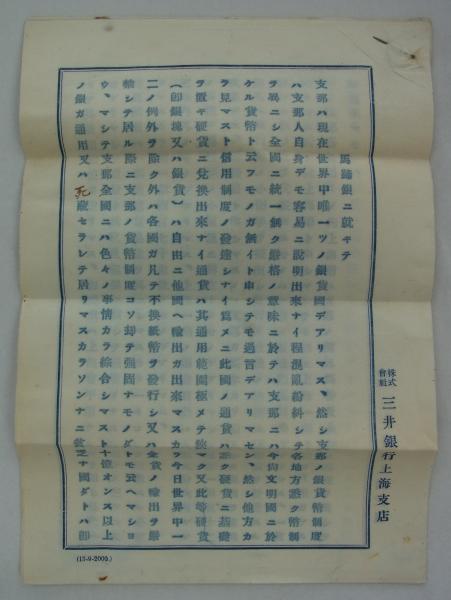 馬蹄銀ニ就キテ
支那ハ現在世界中唯一ツノ銀貨國デアリマス、然シ支那ノ銀貨幣制度
ハ支那人自身デモ容易ニ説明出來ナイ程混亂紛糾シテ各地方悉ク幣制
ヲ異ニシ全國ニ統一無ク嚴格ノ意味ニ於テハ支那ニハ今尚文明國ニ於
ケル貨幣ト云フモノガ無イト申シテモ過言デアリマセン、然シ他方カ
ラ見マスト信用制度ノ發達シナイ爲メニ此國ノ通貨ハ悉ク硬貨ニ基礎
ヲ置キ硬貨ニ兌換出來ナイ通貨ハ其通用範圍極メテ狹マク又此等硬貨
(即銀塊又ハ銀貨)ハ自由ニ他國ヘ輸出ガ出來マスカラ今日世界中一
二ノ例外ヲ除ク外ハ各國ガ凡テ不換紙幣ヲ發行シ又ハ金貨ノ輸出ヲ嚴
禁シテ居ル際ニ支那ノ貨幣制度コソ却テ強固ナモノダトモ云ヘマシヨ
ウ、マシテ支那全國ニハ色々ノ事情カラ綜合シマスト十億オンス以上
ノ銀ガ通用又ハ死藏セラレテ居リマスカラソンナニ貧乏ナ國ダトハ卸
株式會社 三井銀行上海支店
(13-9-2000.)